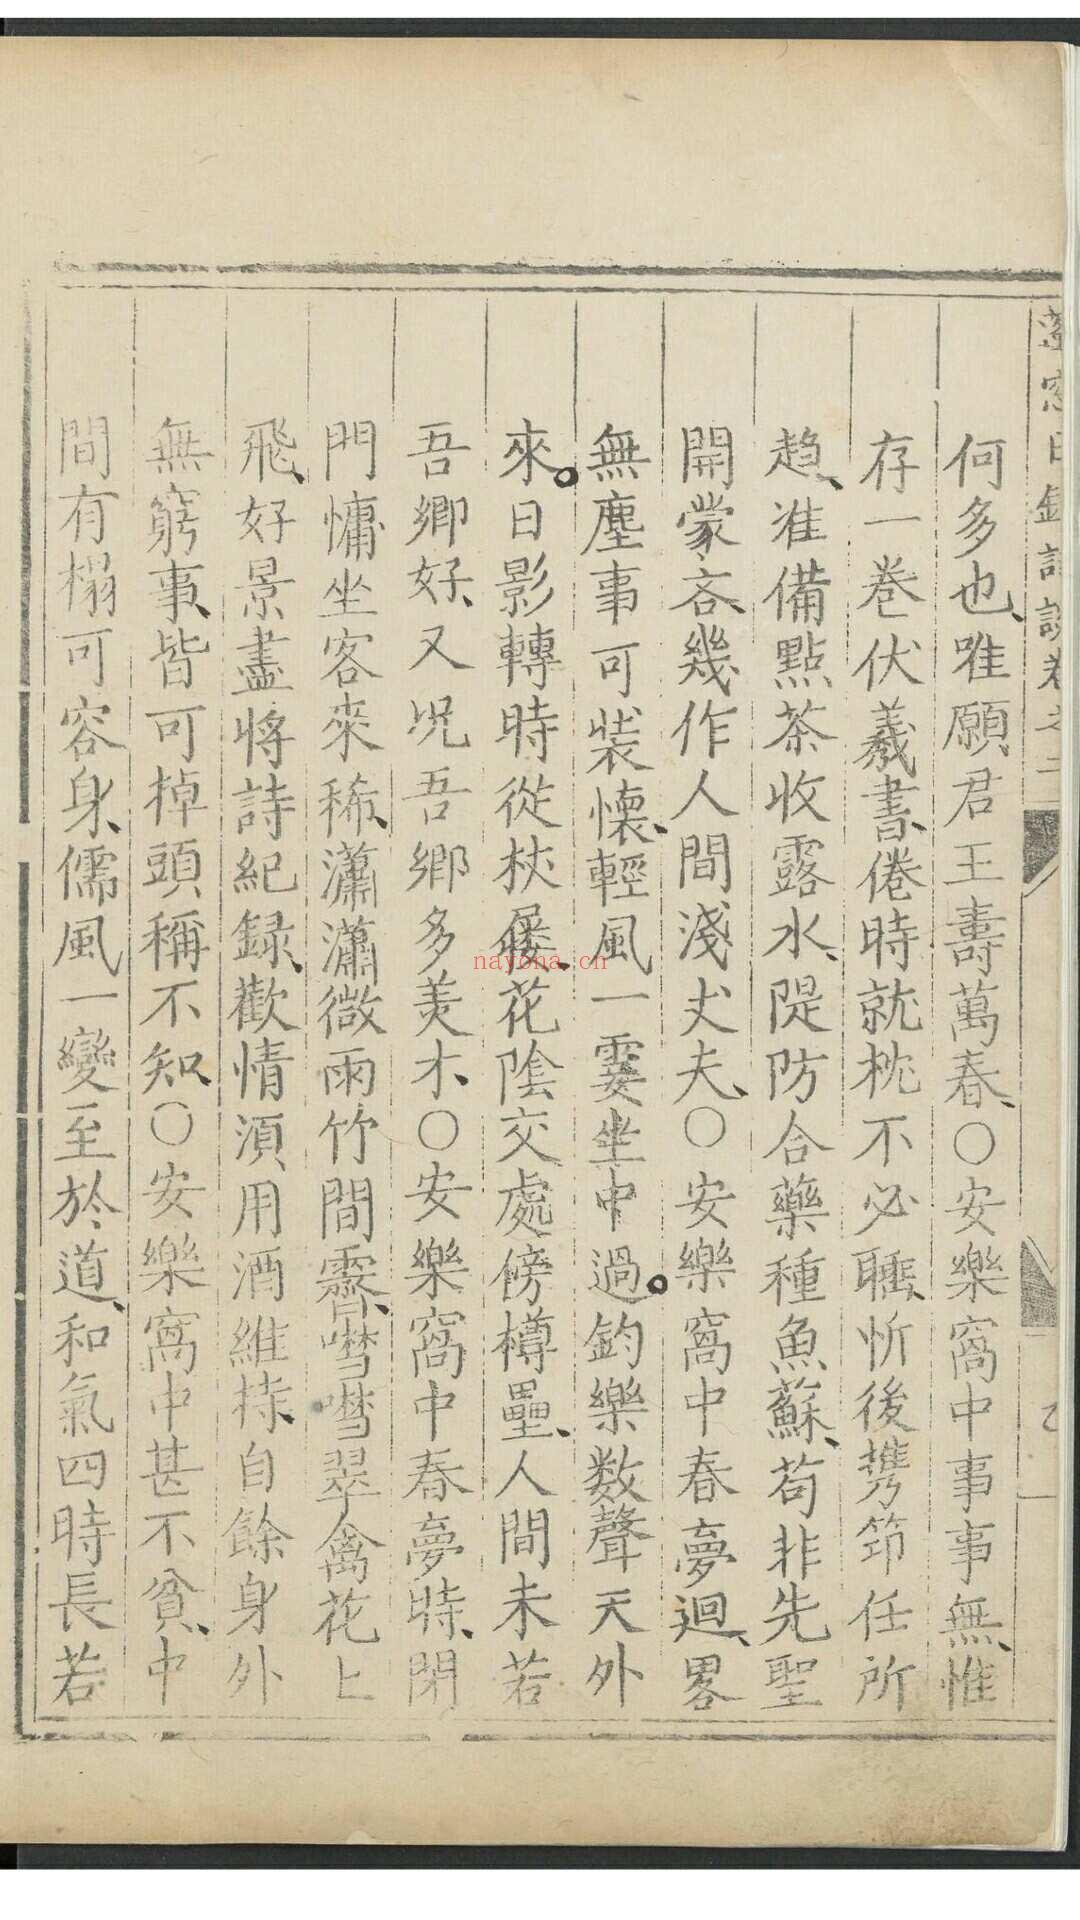 蓬窓日録詩談卷之二
乙
何多也、唯願君王壽萬春、〇安樂窩中事事無、惟
存一卷伏羲書、倦時就枕不必𥈭、忻後携筇任所
趋、准備點茶收露水、隄防合藥種魚蘇、苟非先聖
開蒙吝、幾作人間淺丈夫、〇安樂窩中春夢迴、畧
無塵事可裝懷、輕風一霎坐中過。鈞樂数聲天外
來。日影轉時從杖屨、花陰交處傍樽罍、人間未若
吾鄉好、又况吾鄉多美木、〇安樂窩中春夢時、閉
門慵坐客來稀、瀟瀟微雨竹間霽、嘒嘒翠禽花上
飛、好景盡將詩紀録、歡情湏用酒維持、自餘身外
無窮事、皆可掉頭稱不知、〇安樂窩中甚不貧、中
間有榻可容身、儒風一變至於道、和氣四時長若
nayona.cn